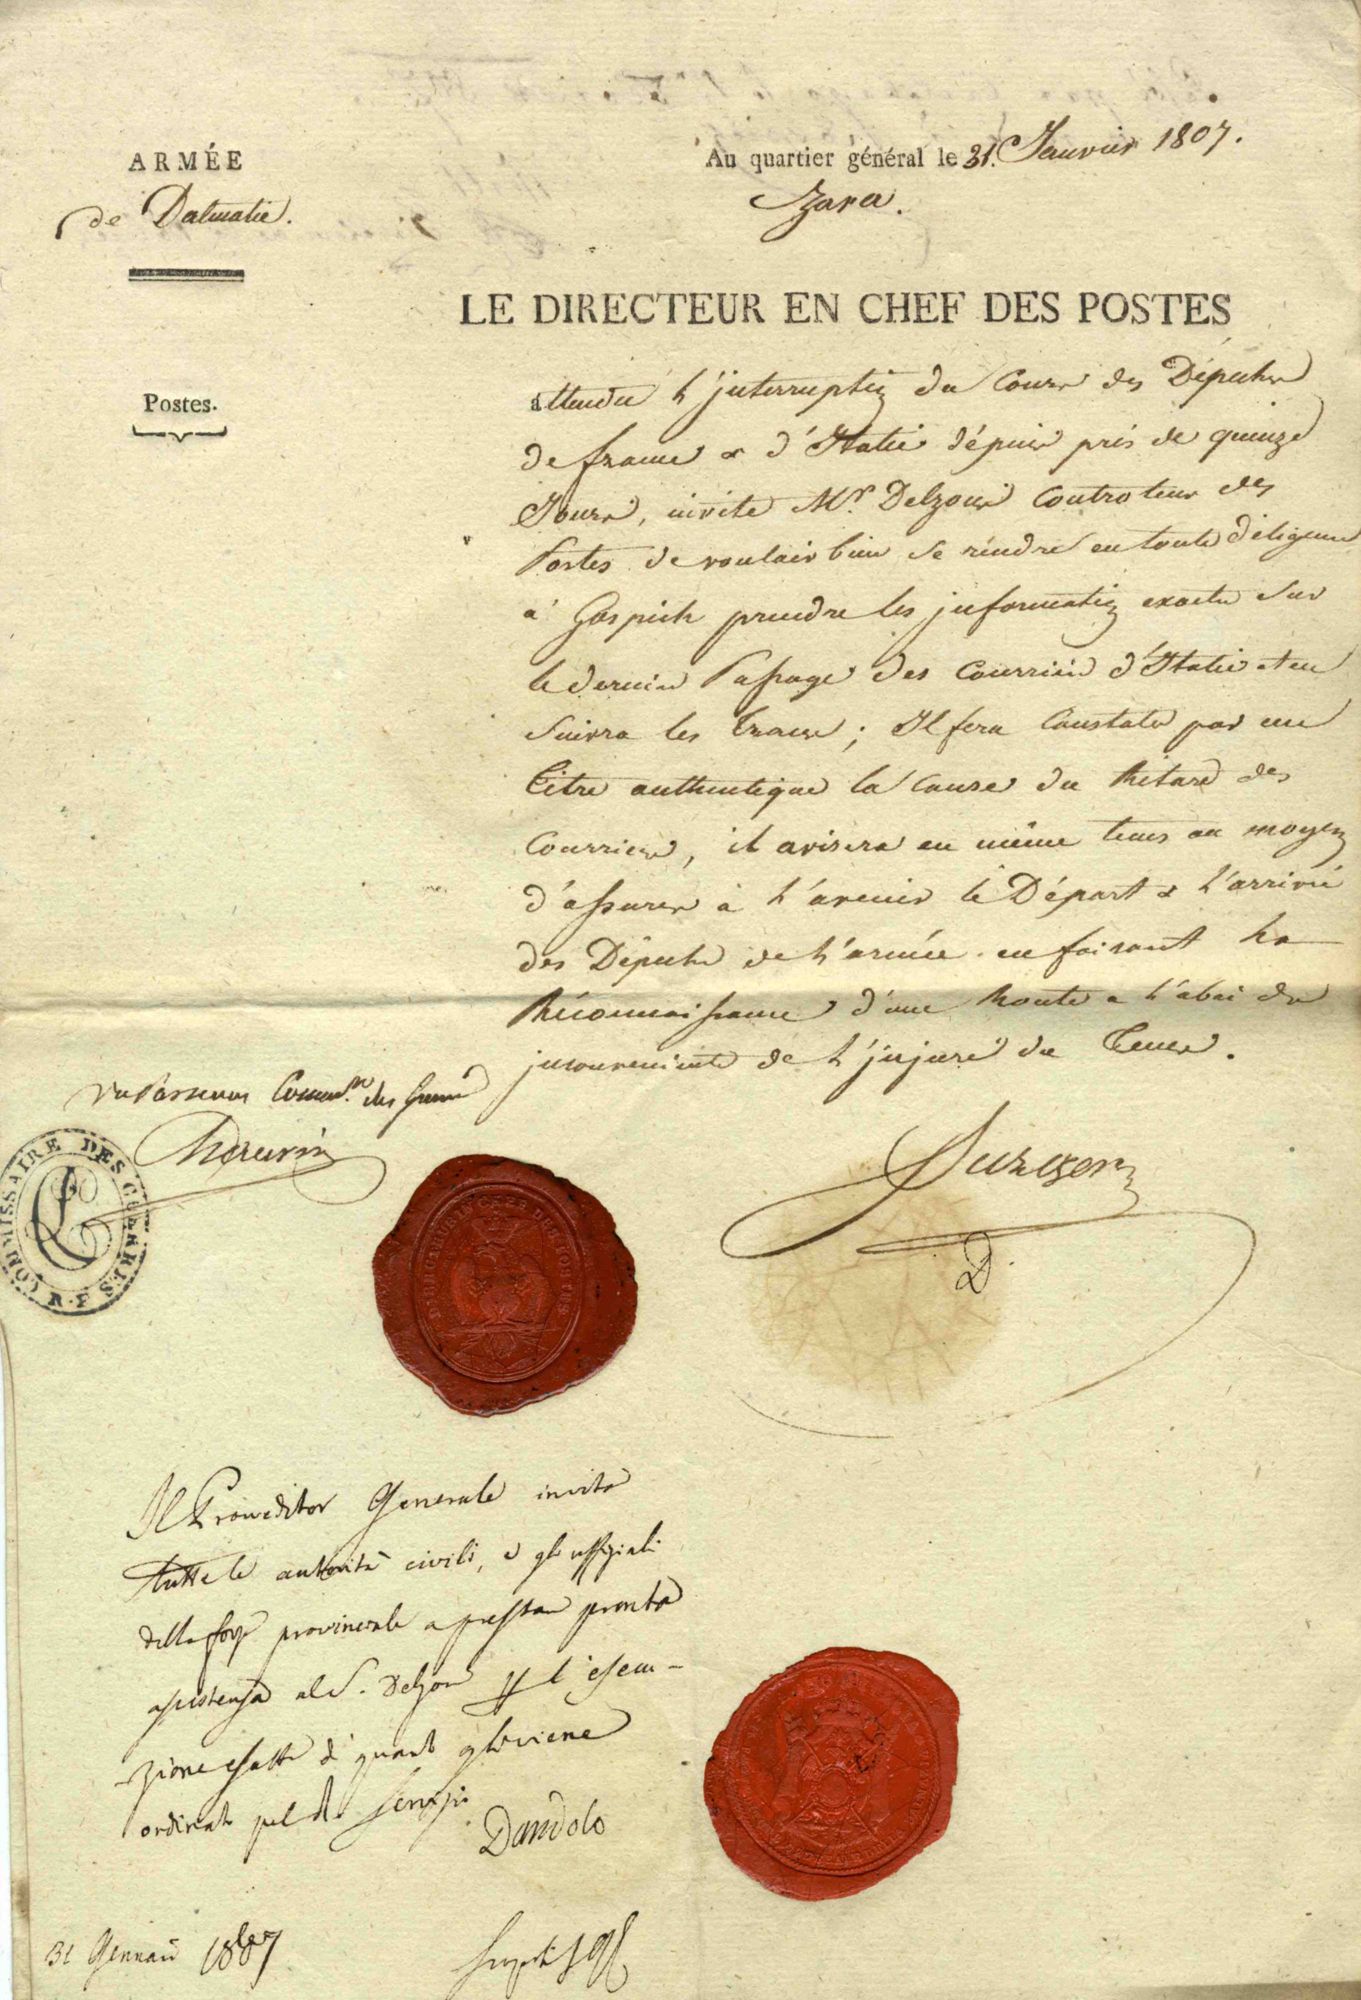 ARMÉE
de Dalmatie.
Au quartier général le 31. Janvier 1807.
Zara.
LE DIRECTEUR EN CHEF DES POSTES
Postes.
attendu l'jnterruption du Cours des Dépeches
de france & d'Italie dépuis prés de quinze
Jours, invite Mr. Delzons Controleur des
Postes de vouloir bien se rendre en toute diligence
a' Gospich prendre les jnformation exacte sur
le dernier Passage des Courriers d'Italie et en
Suivra les traces; Il fera Constater par un
titre authentique la Cause du Rétard des
Courriers, il avisera en même tems au moyen
d'assurer à l'avenir le Départ & l'arrivée
des Dépeches de l'armée en faisant la
Réconnaissance d'une Route a l'abri des
jnconvenients de l'jnjure du tems.
Vu Par nous Commre. des Guerres
COMMISSAIRE DES GUERRES
R.F.
DIRECTEUR EN CHEF DES POSTES
D.
Il Proveditor Generale invita
tutte le autorità civili, e gli uffiziali
della forza provinciale a prestar pronta
assistenza al S. Delzons per l'esecu-
zione esatta di quanto gli viene
ordinato pel do. servizio
Dandolo
31 Gennaio 1807